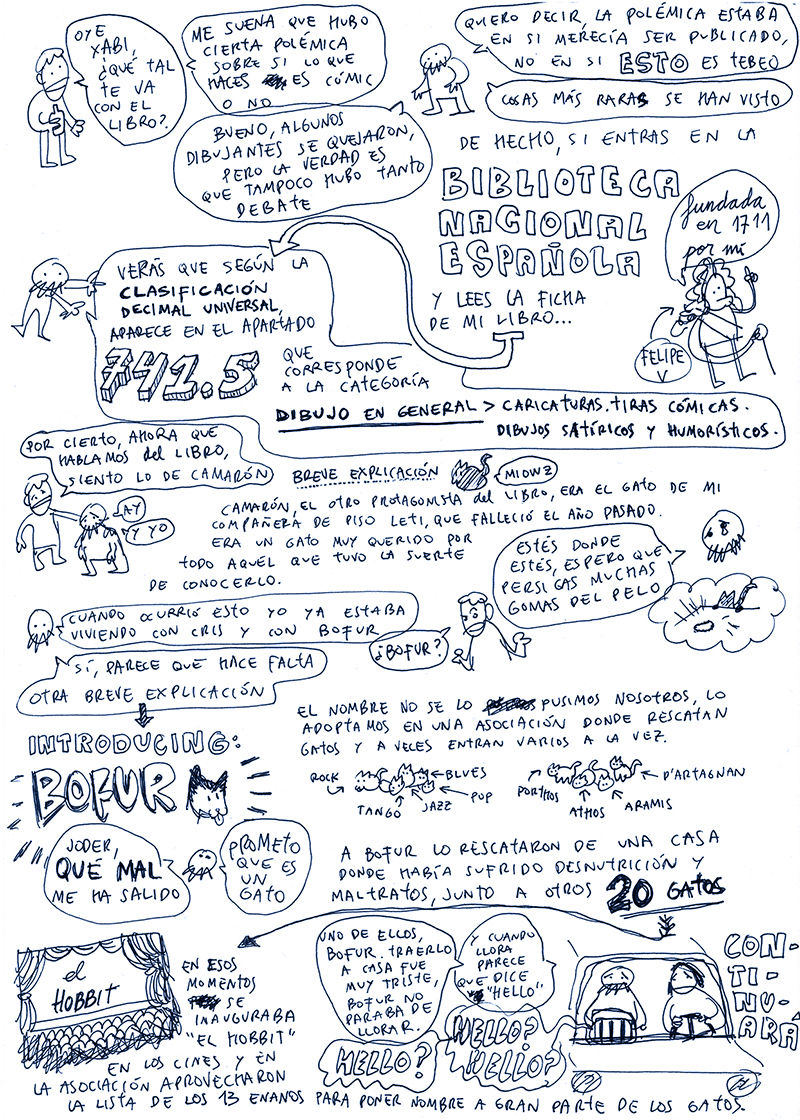 OYE
XABI,
¿QUÉ TAL
TE VA
CON EL
LIBRO?
ME SUENA QUE HUBO
CIERTA POLÉMICA
SOBRE SI LO QUE
HACES ES CÓMIC
O NO
BUENO, ALGUNOS
DIBUJANTES SE QUEJARON,
PERO LA VERDAD ES
QUE TAMPOCO HUBO TANTO
DEBATE
QUIERO DECIR, LA POLÉMICA ESTABA
EN SI MERECÍA SER PUBLICADO,
NO EN SI ESTO ES TEBEO
COSAS MÁS RARAS SE HAN VISTO
DE HECHO, SI ENTRAS EN LA
BIBLIOTECA
NACIONAL
ESPAÑOLA
fundada
en 1711
por mí
FELIPE
V
Y LEES LA FICHA
DE MI LIBRO...
VERÁS QUE SEGÚN LA
CLASIFICACIÓN
DECIMAL UNIVERSAL,
APARECE EN EL APARTADO
741.5
QUE
CORRESPONDE
A LA CATEGORÍA
DIBUJO EN GENERAL > CARICATURAS. TIRAS CÓMICAS.
DIBUJOS SATÍRICOS Y HUMORÍSTICOS.
POR CIERTO, AHORA QUE
HABLAMOS del LIBRO,
SIENTO LO DE CAMARÓN
AY
Y YO
BREVE EXPLICACIÓN
MIOWZ
CAMARÓN, EL OTRO PROTAGONISTA del LIBRO, ERA EL GATO DE MI
COMPAÑERA DE PISO LETI, QUE FALLECIÓ EL AÑO PASADO.
ERA UN GATO MUY QUERIDO POR
TODO AQUEL QUE TUVO LA SUERTE
DE CONOCERLO.
ESTÉS DONDE
ESTÉS, ESPERO QUE
PERSIGAS MUCHAS
GOMAS DEL PELO
CUANDO OCURRIÓ ESTO YO YA ESTABA
VIVIENDO CON CRIS Y CON BOFUR
¿BOFUR?
SÍ, PARECE QUE HACE FALTA
OTRA BREVE EXPLICACIÓN
INTRODUCING:
BOFUR
JODER,
QUÉ MAL
ME HA SALIDO
PROMETO
QUE ES
UN
GATO
EL NOMBRE NO SE LO PUSIMOS NOSOTROS, LO
ADOPTAMOS EN UNA ASOCIACIÓN DONDE RESCATAN
GATOS Y A VECES ENTRAN VARIOS A LA VEZ.
ROCK
BLUES
TANGO
JAZZ
POP
PORTHOS
ATHOS
ARAMIS
D'ARTAGNAN
A BOFUR LO RESCATARON DE UNA CASA
DONDE HABÍA SUFRIDO DESNUTRICIÓN Y
MALTRATOS, JUNTO A OTROS 20 GATOS
el
HOBBIT
EN ESOS
MOMENTOS
SE
INAUGURABA
"EL HOBBIT"
EN LOS CINES Y EN
LA ASOCIACIÓN APROVECHARON
LA LISTA DE LOS 13 ENANOS PARA PONER NOMBRE A GRAN PARTE DE LOS GATOS.
UNO DE ELLOS,
BOFUR. TRAERLO
A CASA FUE
MUY TRISTE,
BOFUR NO
PARABA DE
LLORAR.
Y CUANDO
LLORA
PARECE
QUE DICE
"HELLO"
HELLO?
HELLO?
HELLO?
CON-
TI-
NUA-
RÁ